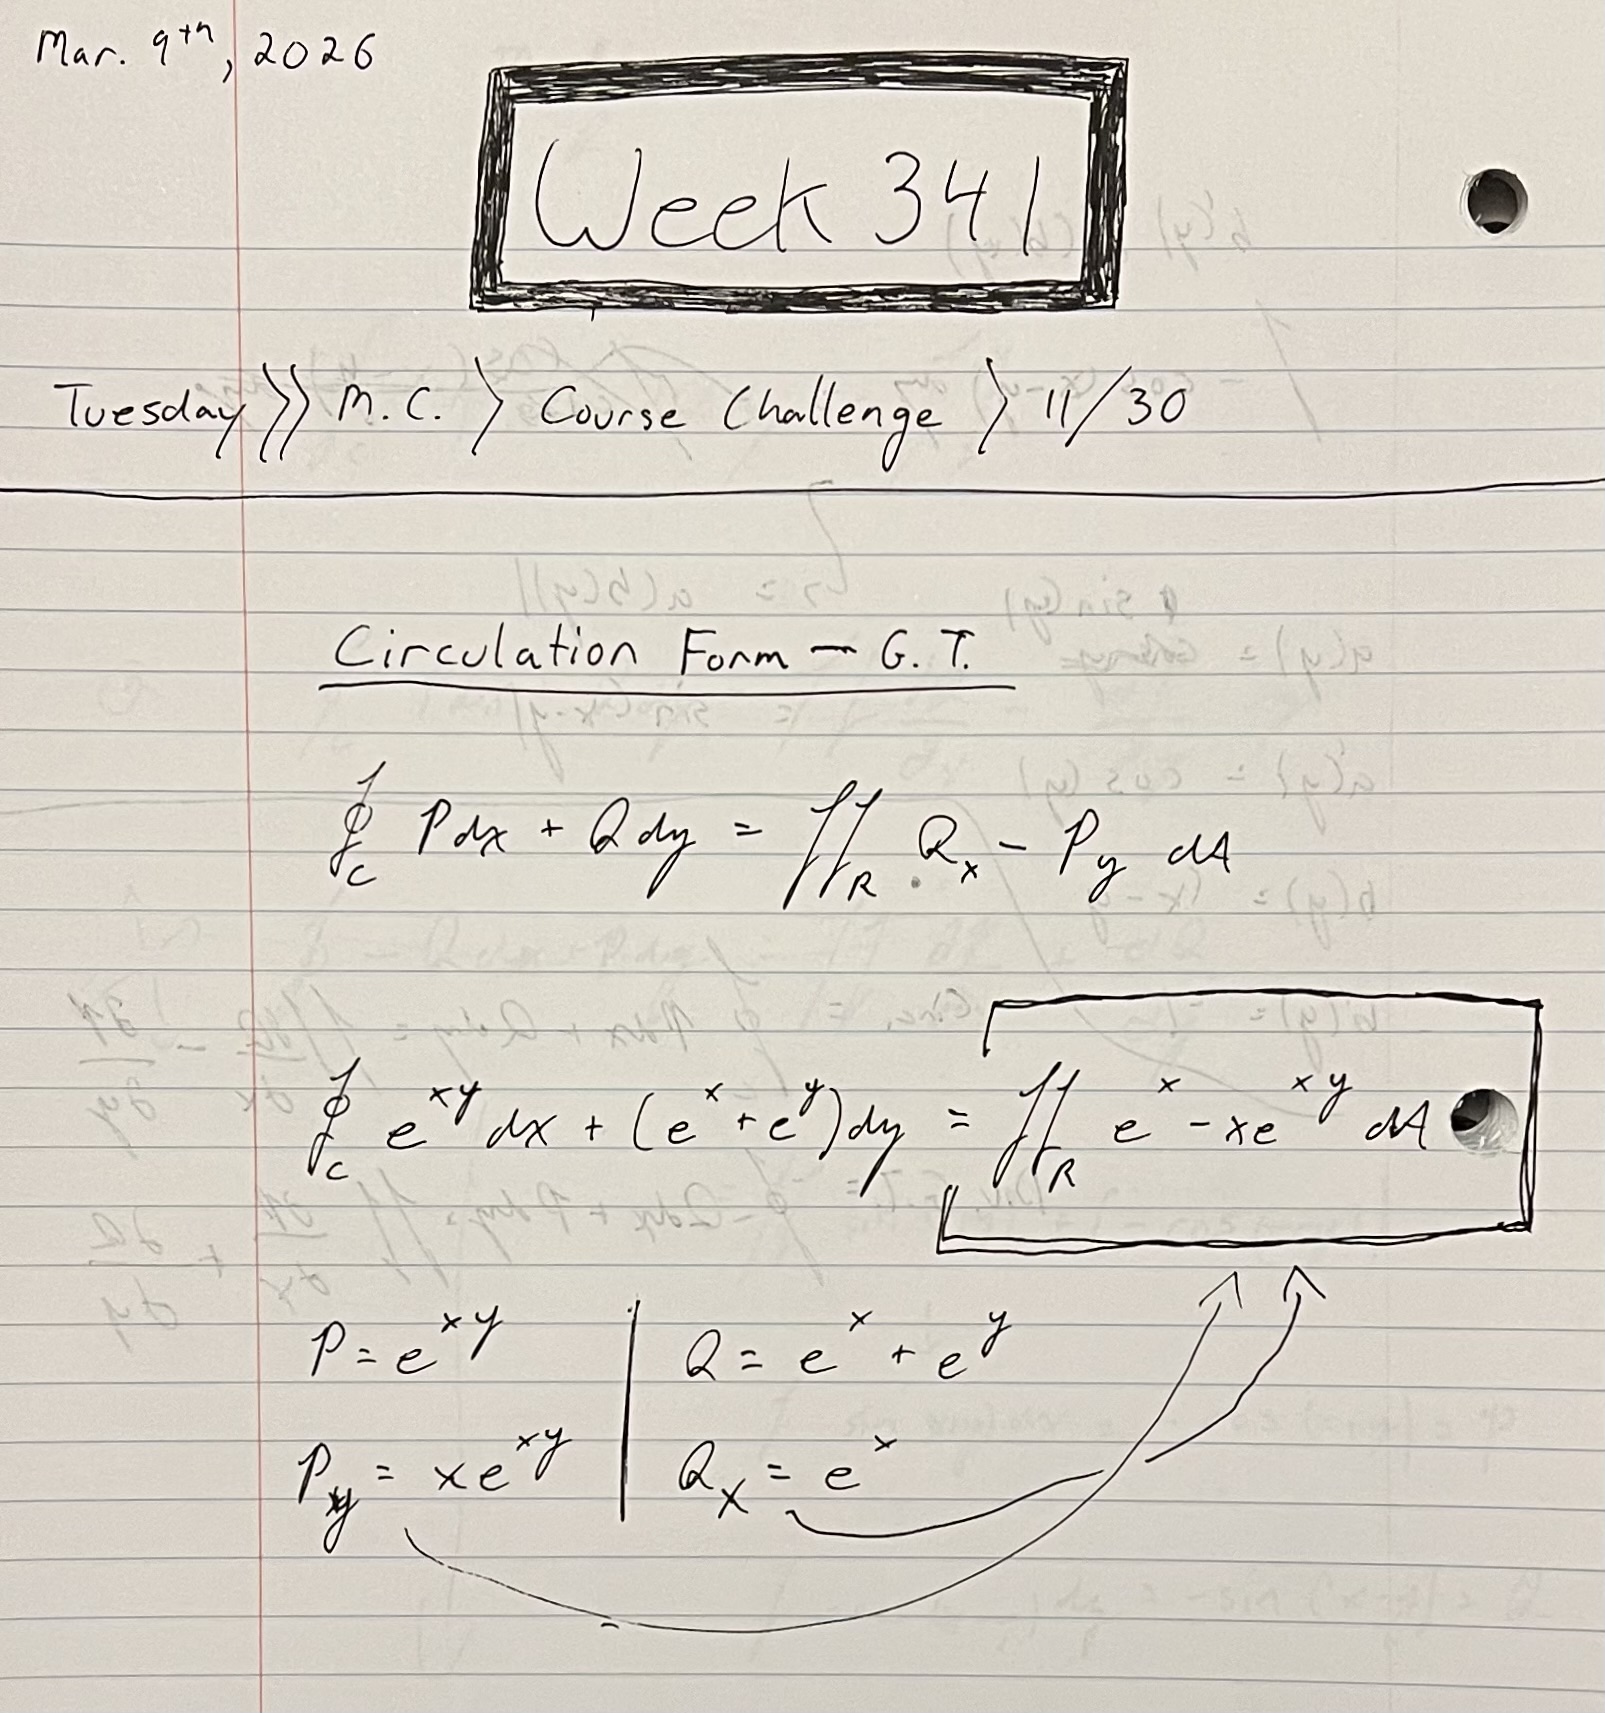 Mar. 9th, 2026
Week 341
Tuesday >> M.C. > Course Challenge > 11/30
Circulation Form — G.T.
∮_C P dx + Q dy = ∬_R Q_x - P_y dA
∮_C e^{xy} dx + (e^x + e^y) dy = ∬_R e^x - xe^{xy} dA
P = e^{xy} | Q = e^x + e^y
P_y = xe^{xy} | Q_x = e^x